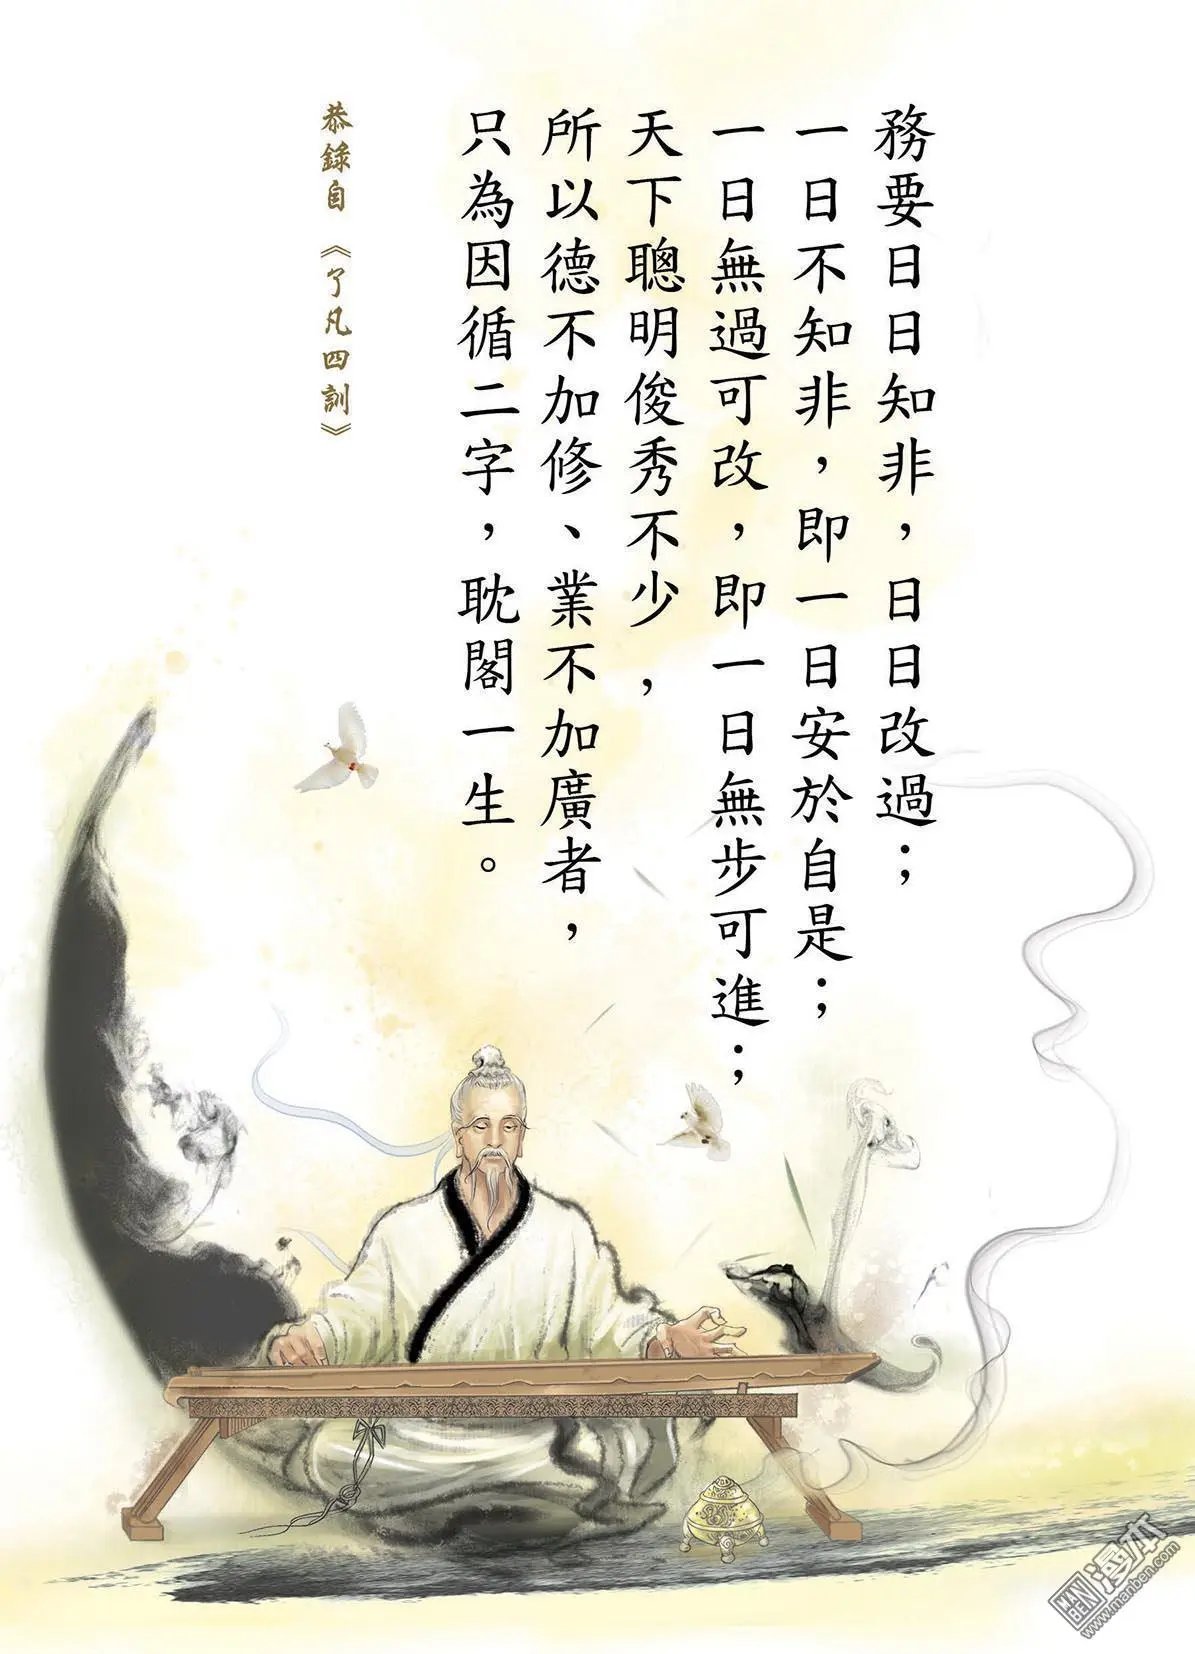 務要日日知非，日日改過；
一日不知非，即一日安於自是；
一日無過可改，即一日無步可進；
天下聰明俊秀不少，
所以德不加修、業不加廣者，
只為因循二字，耽閣一生。
恭錄自《了凡四訓》
MANBEN漫本
www.manben.com